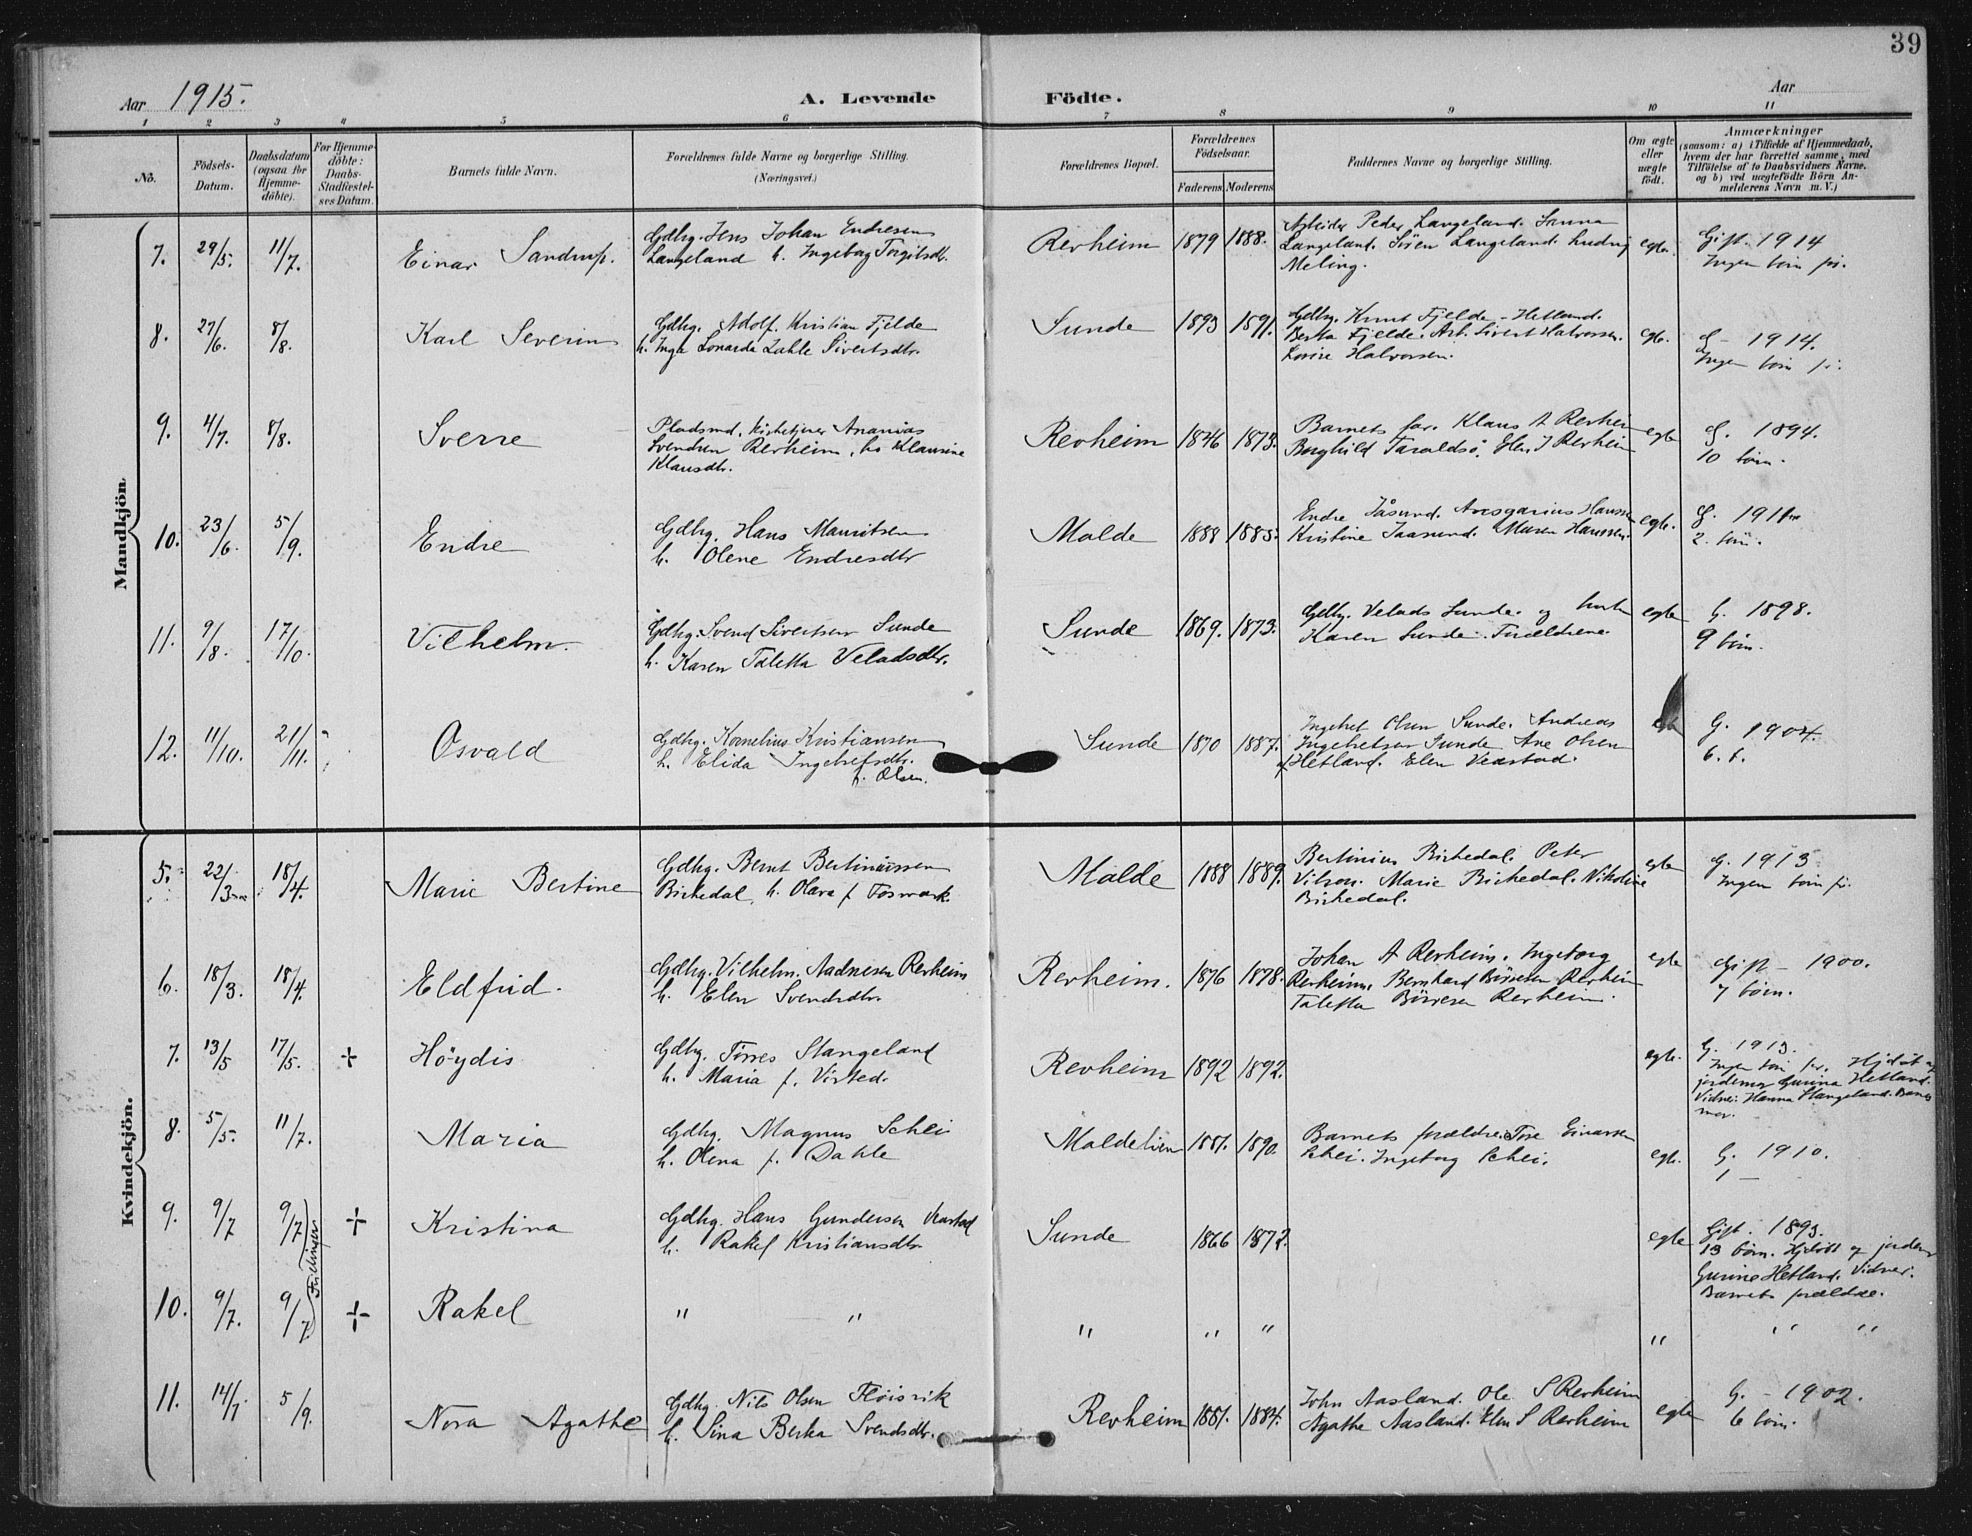 39
Aar 1915.
A. Levende Födte.
Aar
1 2 3 4 5 6 7 8 9 10 11
No.
Födsels-Datum.
Daabsdatum (ogsaa for Hjemme-döbte).
For Hjemme-döbte: Daabs-Stadfæstel-ses Datum.
Barnets fulde Navn.
Forældrenes fulde Navne og borgerlige Stilling.
(Næringsvei.)
Forældrenes Bopæl.
Forældrenes Födselsaar.
Faderens Moderens
Faddernes Navne og borgerlige Stilling.
Om ægte eller uægte födt.
Anmærkninger
(saasom: a) i Tilfælde af Hjemmedaab,
hvem der har forrettet samme, med
Tilföielse af to Daabsvidners Navne.
og b) ved uægtefödte Börn An-
melderens Navn m. V.)
Mandkjön.
7. 29/5. 11/7. Einar Sandrup.
Gdbg. Jens Johan Endresen
Langeland h. Ingeborg Torgilsdtr.
Revheim 1879 1888.
Arbeider Peder Langeland.
Langeland. Sören Langeland. Ludvig
Meling.
egte.
Gift. 1914
Ingen børn før.
8. 27/6. 8/8. Karl Severin
Gdbg. Adolf Kristian Fjelde
h. Inga Lonarda Zahle Sivertsdtr.
Sunde 1893 1891.
Gdbg. Knut Fjelde - Hetland.
Berta Fjelde. Arb. Sivert Halvorsen.
Halvorsen.
egte.
G - 1914.
Ingen børn før.
9. 4/7. 8/8. Sverre
Pladsmd. kirketjener Ananias
Svendsen Revheim, h. Klausine
Klausdtr.
Revheim 1846 1873.
Barnets far. Klaus A Revheim
Borghild Taraldsö. Elen J Revheim
egte
G. 1894.
10 børn.
10. 23/6. 5/9. Endre
Gdbg. Hans Mauritsen
h. Olene Endresdtr
Malde 1888 1885.
Endre Jåsund. Hanssen
Kristine Jaasund. Maren Hanssen.
egte.
G. 1911
2. børn.
11. 9/8. 17/10. Vilhelm.
Gdbg. Svend Sivertsen Sunde
h. Karen Taletta Veladsdtr.
Sunde 1869. 1873.
Gdbg. Velads Sunde. og hustru
Karen Sunde. Forældrene.
egte
G. 1898.
9 børn.
12. 11/10. 21/11. Osvald
Gdbg. Kornelius Kristiansen
h. Elida Ingebretsdtr.
f. Olsen.
Sunde 1870 1887.
Ingebret Olsen Sunde. Andreas
Ingebretsen Sunde Ane Olsen
Hetland. Elen Veastad.
G. 1904.
6. b.
Kvindekjön.
5. 22/3 18/4. Marie Bertine
Gdbg. Bernt Bertiniussen
Birkedal, h. Olava f Fosmark.
Malde 1888 1889.
Bertinius Birkedal. Peter
Vilson. Marie Birkedal. Nikoline
Birkedal.
egte
G. 1913
Ingen børn før.
6. 18/3. 18/4. Eldfrid.
Gdbg. Vilhelm. Aadnesen Revheim
h. Elen Svendsdtr.
Revheim. 1876 1878.
Johan A Revheim. Ingeborg
Revheim. Bernhard Börresen Revheim
Taletta Börresen Revheim.
egte
Gift - 1900.
7 børn.
7. 13/5 17/5. + Höydis
Gdbg. Törres Stangeland
h. Maria f. Visted.
Revheim 1892 1892.
egte.
G. 1913.
Ingen børn før. Hjdöbt af
jordemor Gurina Hetland.
Vidner: Hanna Stangeland. Barnets
mor.
8. 5/5. 11/7. Maria
Gdbg. Magnus Schei
h. Olena f. Dahle
Maldelien 1881. 1890.
Barnets forældre. Tore Einarsen
Schei. Ingeborg Schei.
egte.
G. 1910.
1 —
9. 9/7 9/7 + Kristina
Tvillinger
Gdbg. Hans Gundersen Veastad
h. Rakel Kristiansdtr.
Sunde 1866 1872.
egte
Gift. 1893.
13 børn. Hjdöbt af jordemor
Gurine Hetland. Vidner:
Barnets forældre.
10. 9/7. 9/7 + Rakel
" " " " " " " "
11. 14/7. 5/9. Nora Agathe
Gdbg. Nils Olsen Flöisvik
h. Sina Berta Svendsdtr.
Revheim 1881. 1884.
John Aasland. Ole S Revheim
Agathe Aasland. Elen S Revheim
egte
G. - 1902.
6 børn.